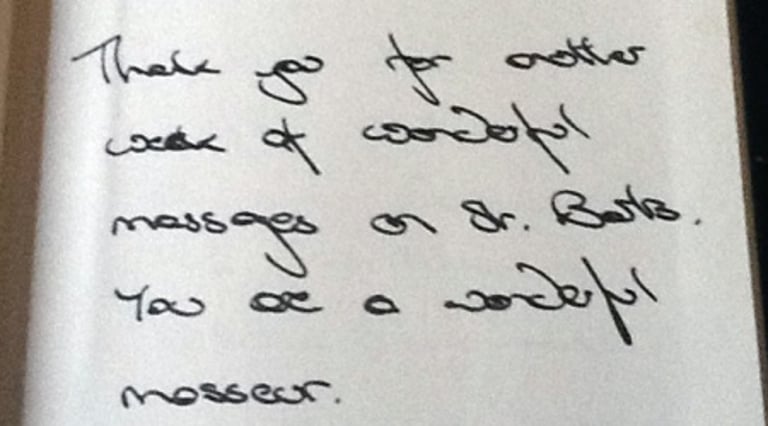 Thank you for another
week of wonderful
massages on St. Barts.
You are a wonderful
masseur.